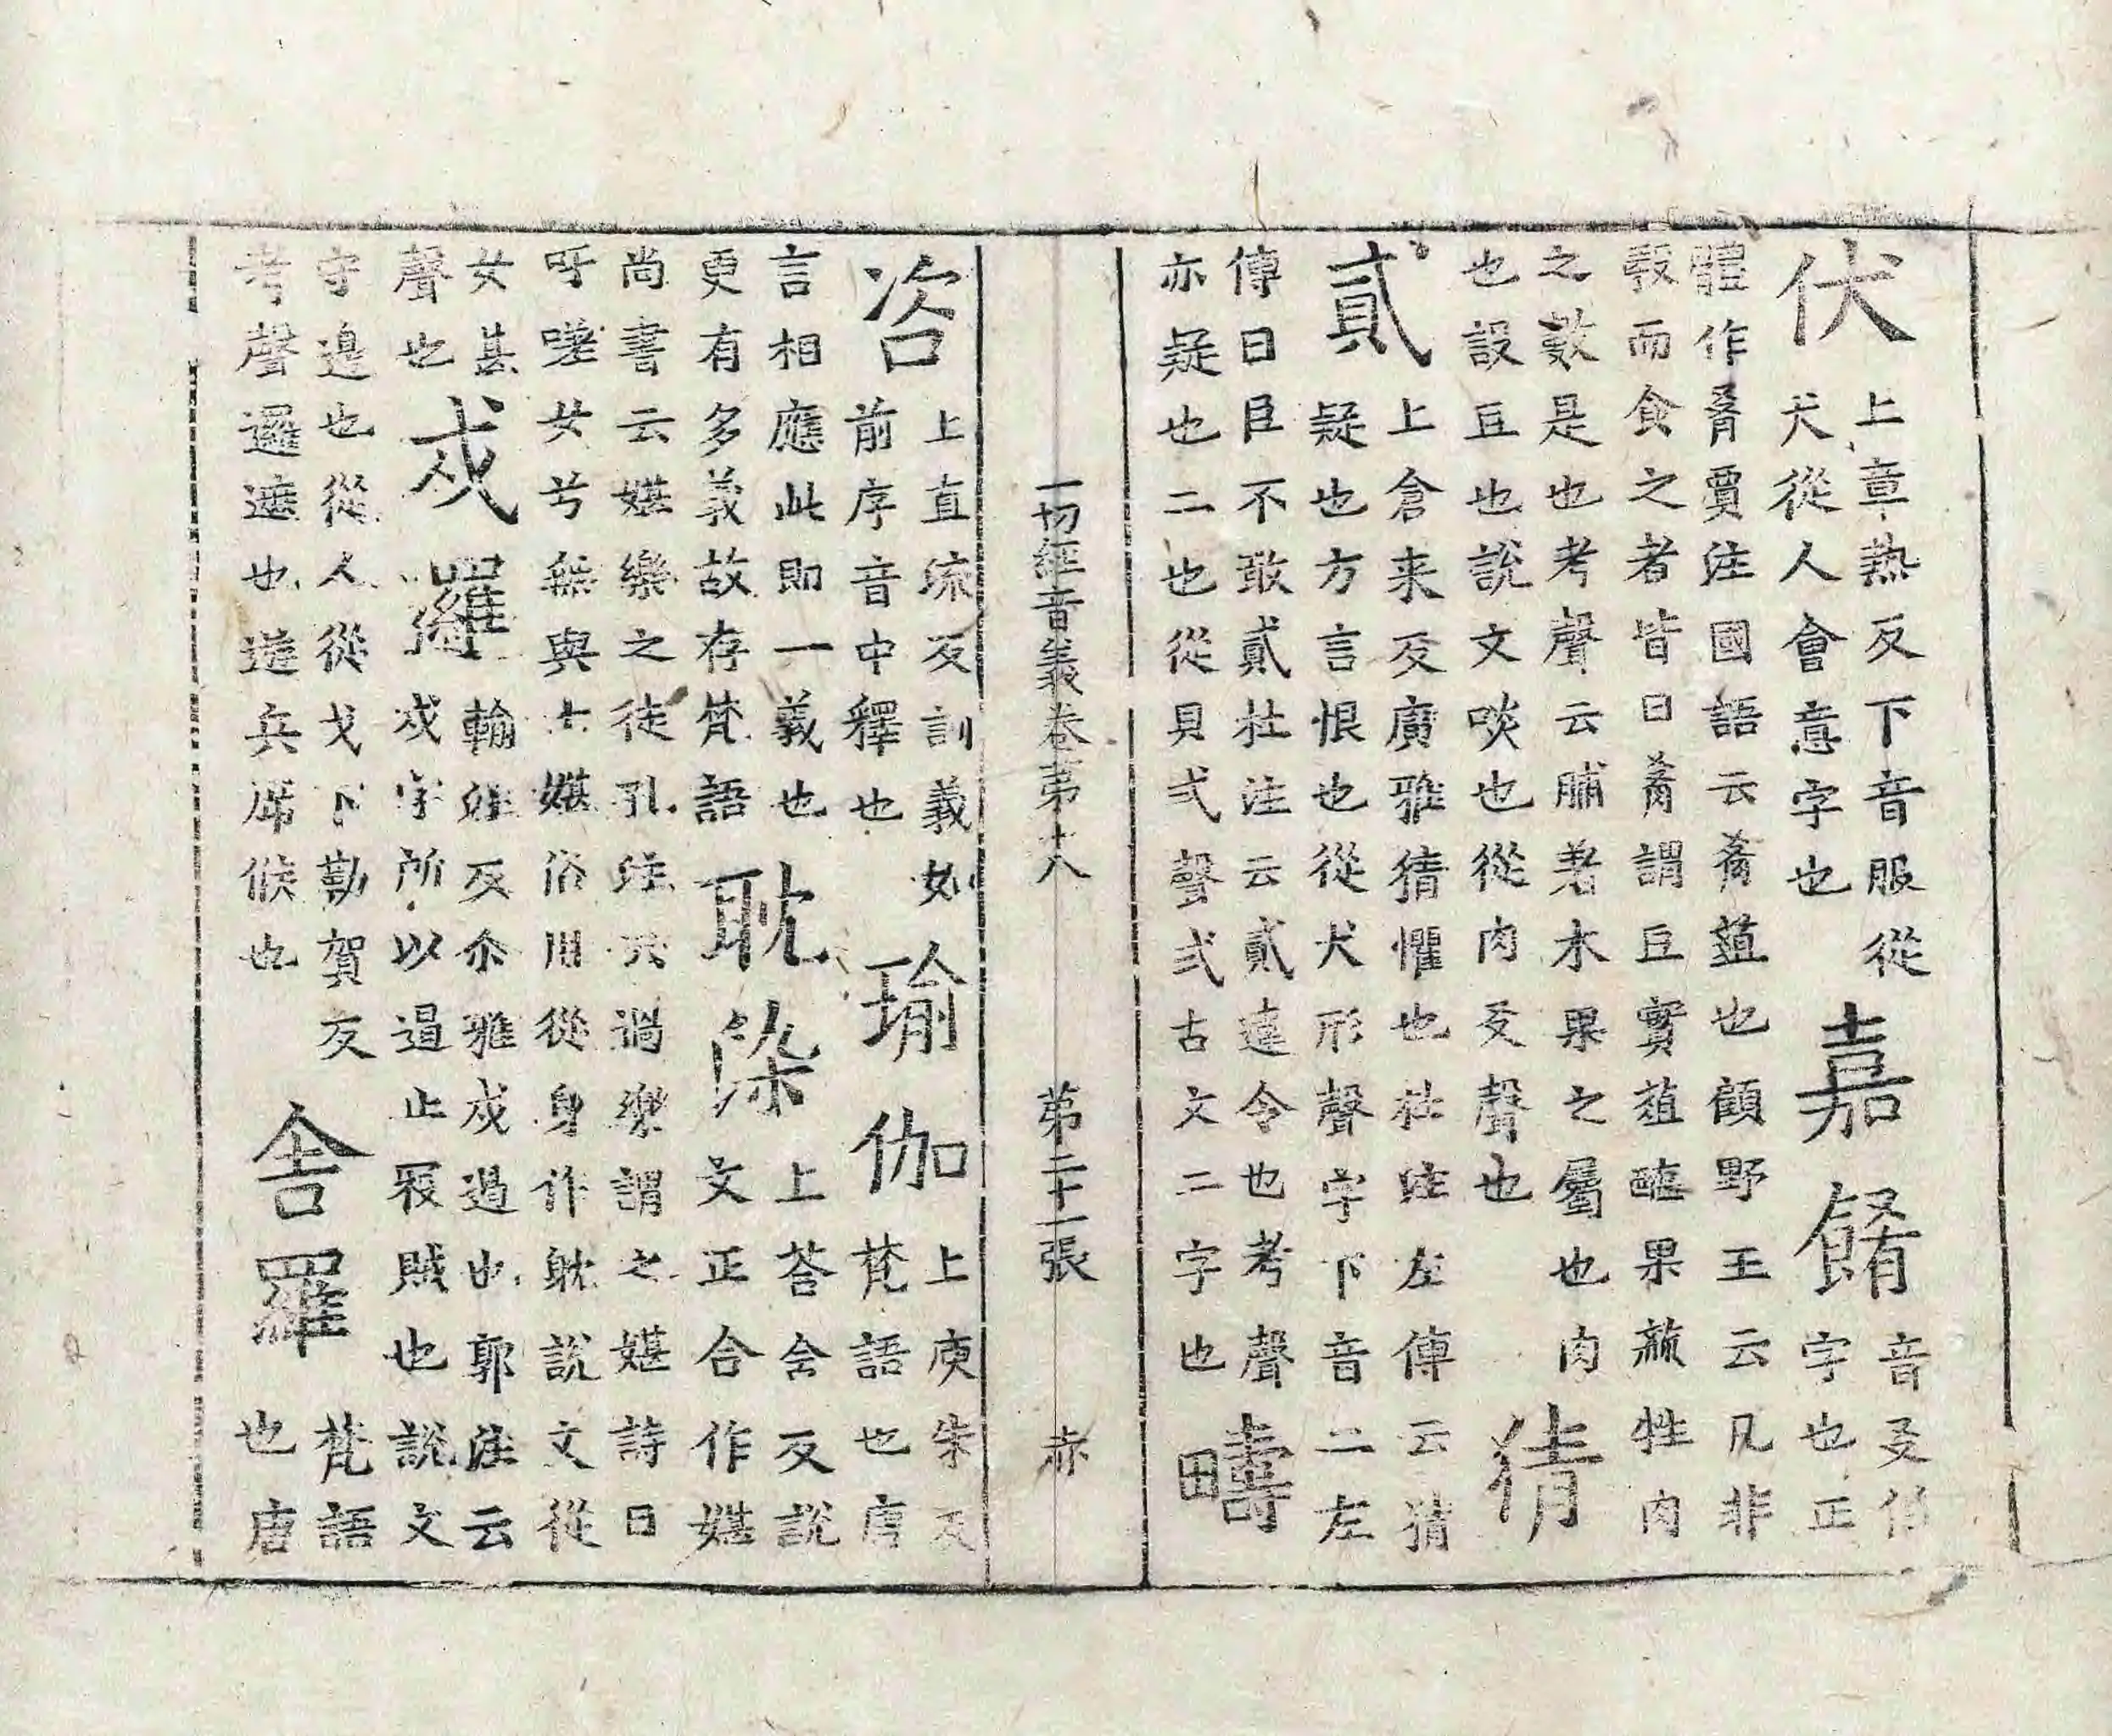 伏
上章熱反下音服從
犬從人會意字也
嘉餚
音爻俗
字也正
體作肴賈注國語云肴葅也顧野王云凡非
穀而食之者皆曰肴謂豆實葅醢果蓏牲肉
之數是也考聲云脯羞木果之屬也肉
也設豆也說文啖也從肉爻聲也
猜
貳
上倉来反廣雅猜懼也杜注左傳云猜
疑也方言恨也從犬形聲字下音二左
傳曰臣不敢貳杜注云貳違令也考聲
亦疑也二也從貝弍聲弍古文二字也
疇
一切經音義卷苐十八 苐二十一張 赤
咨
上直流反訓義如
前序音中釋也
瑜伽
上庾朱反
梵語也唐
言相應此即一義也
更有多義故存梵語
耽染
上荅含反說
文正合作媅
尚書云媅樂之從孔注云過樂謂之媅詩曰
吁嗟女兮無與士媅俗用從身作躭說文從
女甚
聲也
戍邏
輸注反尒雅戍遏也郭注云
戍字所以遏止冦賊也說文
守邊也從人從戈下勒賀反
考聲邏遮也遊兵斥候也
舍羅
梵語
也唐